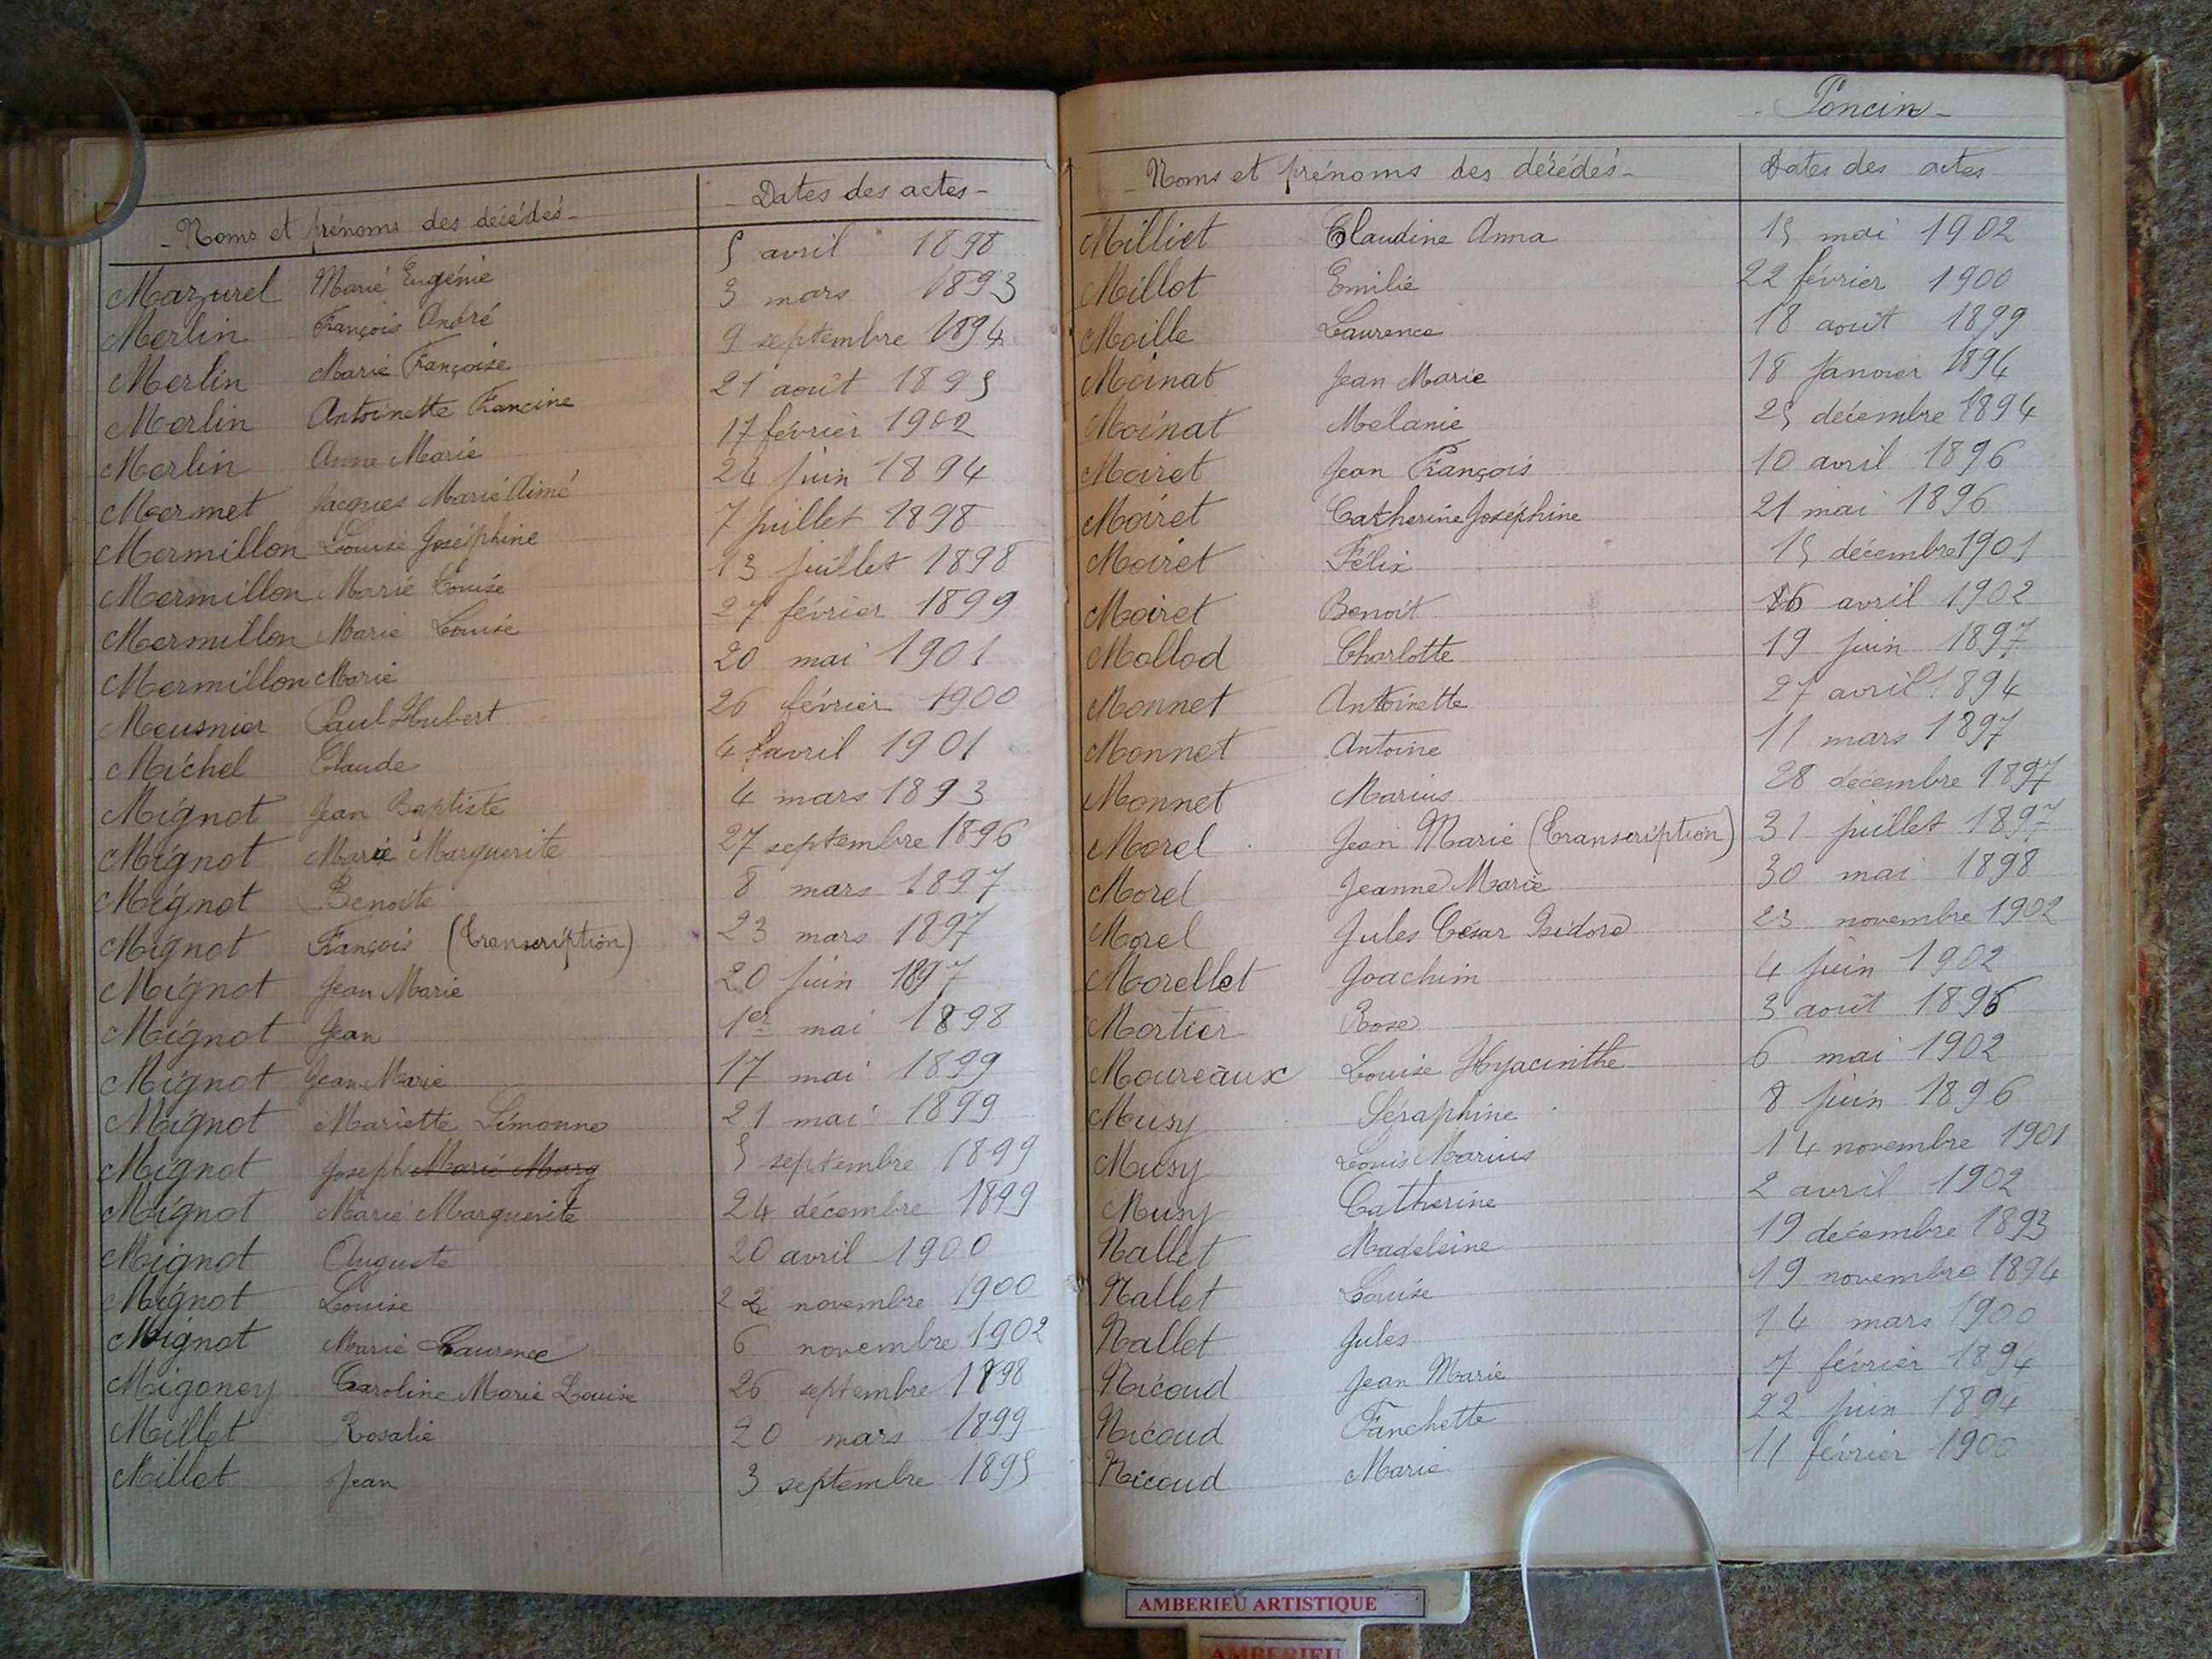 - Noms et prénoms des décédés - - Dates des actes -
Mazurel Marie Eugénie 5 avril 1898
Merlin François André 3 mars 1893
Merlin Marie Françoise 9 septembre 1894
Merlin Antoinette Francine 21 août 1895
Merlin Anne Marie 17 février 1902
Mermet Jacques Marie Aimé 24 juin 1894
Mermillon Louise Joséphine 7 juillet 1898
Mermillon Marie Louise 13 juillet 1898
Mermillon Marie Louise 27 février 1899
Mermillon Marie 20 mai 1901
Meusnier Paul Hubert 26 février 1900
Michel Claude 4 avril 1901
Mignot Jean Baptiste 4 mars 1893
Mignot Marie Marguerite 27 septembre 1896
Mignot Benoite 8 mars 1897
Mignot François (Transcription) 23 mars 1897
Mignot Jean Marie 20 juin 1897
Mignot Jean 1er mai 1898
Mignot Jean Marie 17 mai 1899
Mignot Mariette Simonne 21 mai 1899
Mignot Joseph Marie Marg 5 septembre 1899
Mignot Marie Marguerite 24 décembre 1899
Mignot Auguste 20 avril 1900
Mignot Louise 22 novembre 1900
Mignot Marie Laurence 6 novembre 1902
Migoney Caroline Marie Louise 26 septembre 1898
Millet Rosalie 20 mars 1899
Millet Jean 3 septembre 1895
- Poncin -
- Noms et prénoms des décédés - Dates des actes
Milliet Claudine Anna 15 mai 1902
Millot Emilie 22 février 1900
Moille Laurence 18 août 1899
Moinat Jean Marie 18 Janvier 1894
Moinat Mélanie 25 décembre 1894
Moiret Jean François 10 avril 1896
Moiret Catherine Joséphine 21 mai 1896
Moiret Félix 15 décembre 1901
Moiret Benoit 16 avril 1902
Mollod Charlotte 19 juin 1897
Monnet Antoinette 27 avril 1894
Monnet Antoine 11 mars 1897
Monnet Marius 28 décembre 1897
Morel Jean Marie (Transcription) 31 juillet 1897
Morel Jeanne Marie 30 mai 1898
Morel Jules César Isidore 23 novembre 1902
Morellet Joachim 4 juin 1902
Mortier Rose 3 août 1896
Moureaux Louise Hyacinthe 6 mai 1902
Musy Séraphine 8 juin 1896
Musy Louis Marius 14 novembre 1901
Musy Catherine 2 avril 1902
Nallet Madeleine 19 décembre 1893
Nallet Louise 19 novembre 1894
Nallet Jules 14 mars 1900
Nicoud Jean Marie 7 février 1894
Nicoud Fanchette 22 juin 1894
Nicoud Marie 11 février 1900
AMBERIEU ARTISTIQUE
AMBERIEU